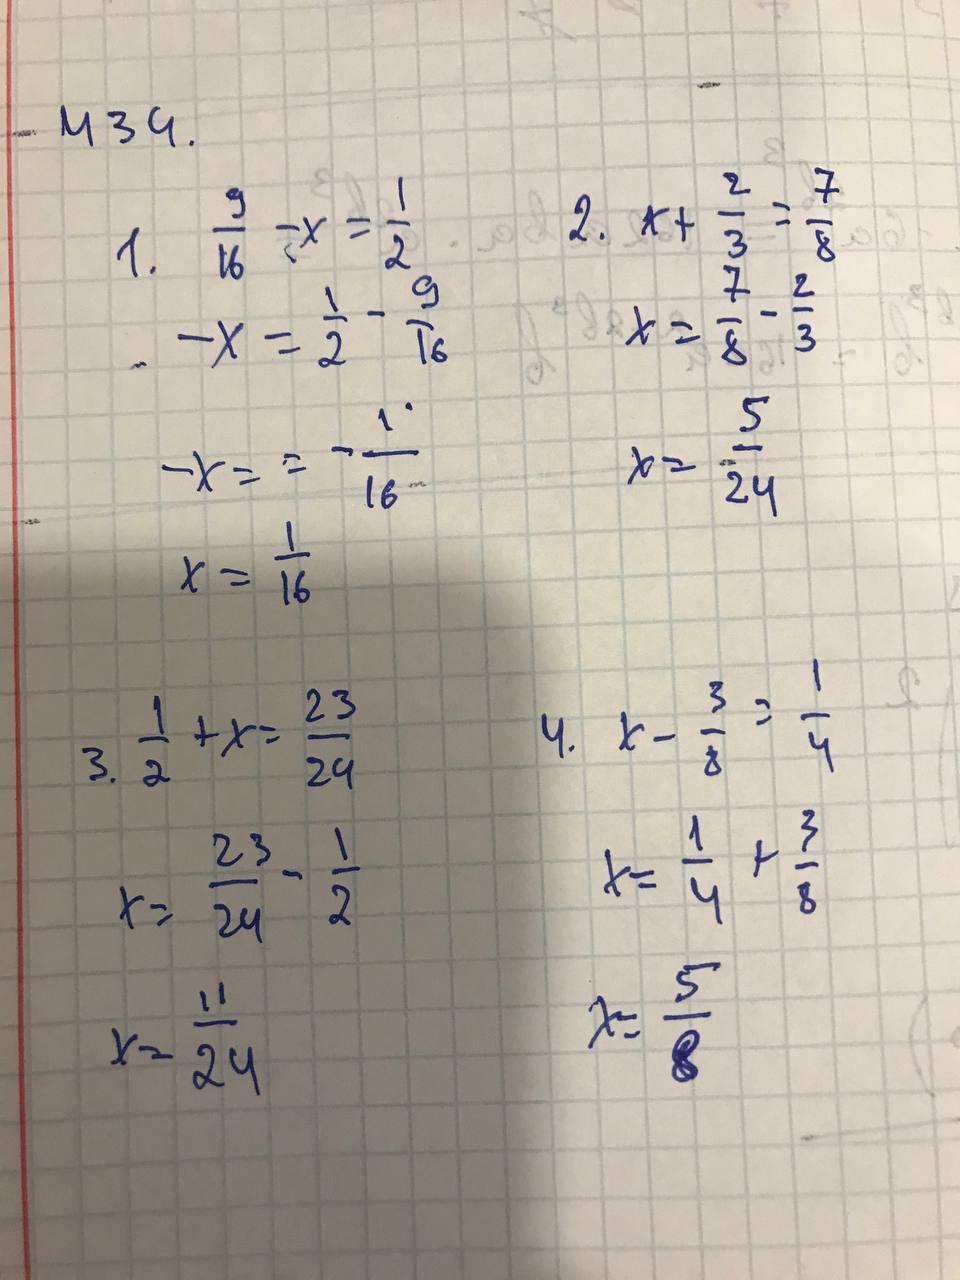 М34.
1. 9/16 - x = 1/2
-x = 1/2 - 9/16
-x = = - 1/16
x = 1/16
2. x + 2/3 = 7/8
x = 7/8 - 2/3
x = 5/24
3. 1/2 + x = 23/24
x = 23/24 - 1/2
x = 11/24
4. x - 3/8 = 1/4
x = 1/4 + 3/8
x = 5/8